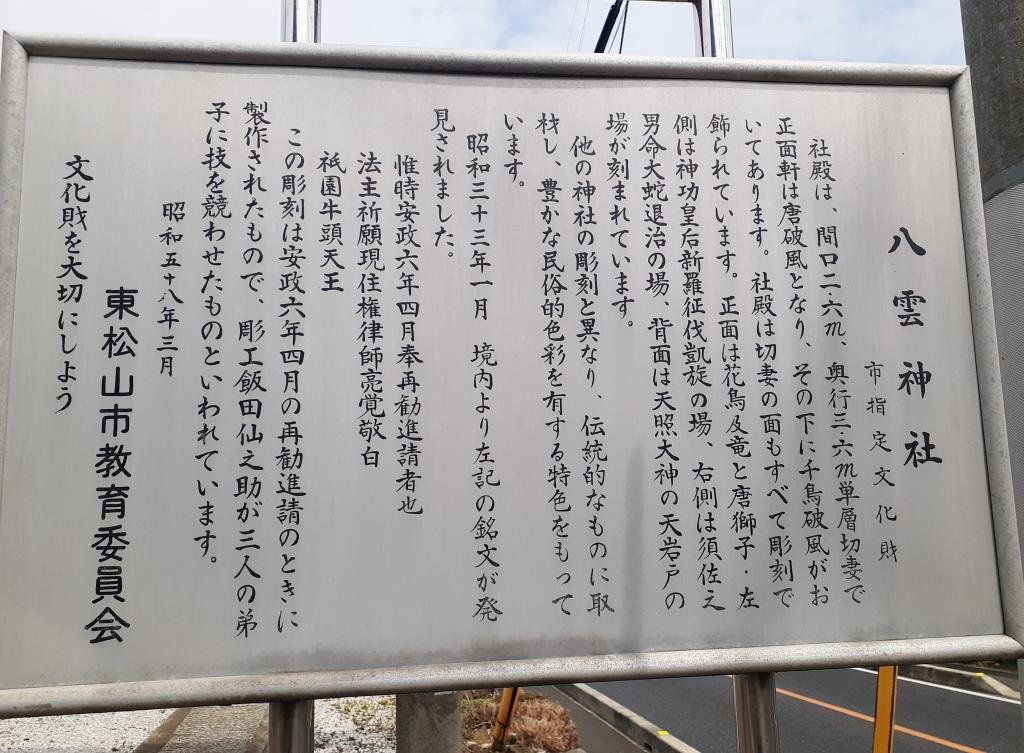 八雲神社
市指定文化財
社殿は、間口二・六m、奥行三・六m単層切妻で
正面軒は唐破風となり、その下に千鳥破風がお
いてあります。社殿は切妻の面もすべて彫刻で
飾られています。正面は花鳥及竜と唐獅子・左
側は神功皇后新羅征伐凱旋の場、右側は須佐之
男命大蛇退治の場、背面は天照大神の天岩戸の
場が刻まれています。
他の神社の彫刻と異なり、伝統的なものに取
材し、豊かな民俗的色彩を有する特色をもって
います。
昭和三十三年一月　境内より左記の銘文が発
見されました。
惟時安政六年四月奉再勧進請者也
法主祈願現住権律師亮覚敬白
祇園牛頭天王
この彫刻は安政六年四月の再勧進請のときに
製作されたもので、彫工飯田仙之助が三人の弟
子に技を競わせたものといわれています。
昭和五十八年三月
東松山市教育委員会
文化財を大切にしよう